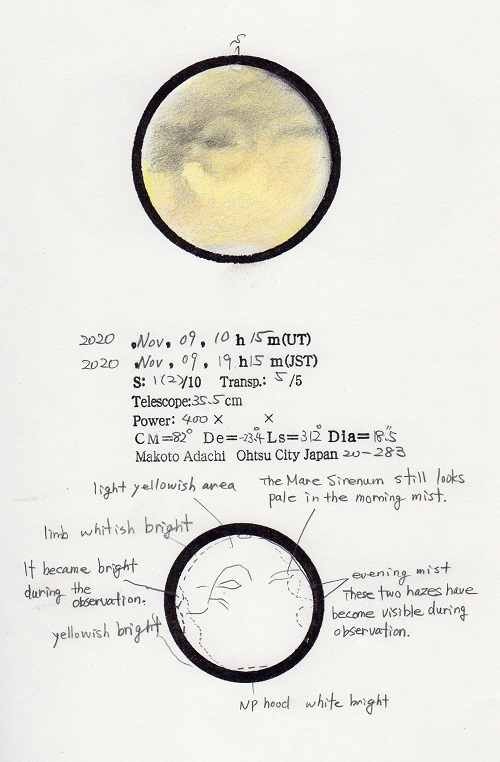 S
2020 .Nov, 09, 10 h 15 m(UT)
2020 .Nov, 09, 19 h15 m(JST)
S: 1(2)/10 Transp.: 5 /5
Telescope:35.5 cm
Power: 400 × ×
CM=82° De=-23.4 Ls=312° Dia=18."5
Makoto Adachi Ohtsu City Japan 20-283
light yellowish area
The Mare Sirenum still looks
pale in the morning mist.
limb whitish bright
It became bright
during the
observation.
yellowish bright
evening mist
These two hazes have
become visible during
observation.
NP hood white bright